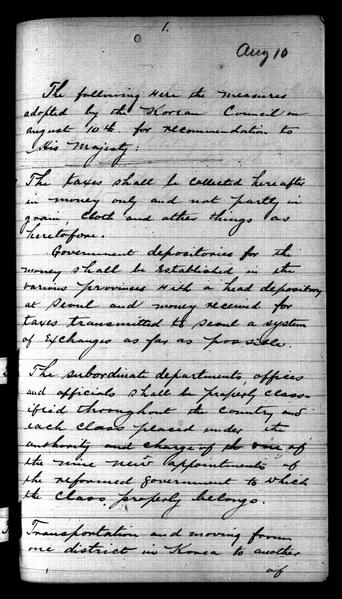 1.
Aug 10
The following were the measures
adopted by the Korean Council on
august 10th for recommendation to
His Majesty:
The taxes shall be collected hereafter
in money only and not partly in
grain, cloth and other things as
heretofore.
Government depositories for the
money shall be established in the
various provinces with a head depository
at Seoul and money received for
taxes transmitted to Seoul a system
of Exchanges as far as possible.
The subordinate departments, offices
and officials shall be properly class-
ified throughout the country and
each class placed under the
authority and charge of the one of
the nine new appointments of
the reformed government to which
the class properly belongs.
Transportation and moving from
one district in Korea to another
of